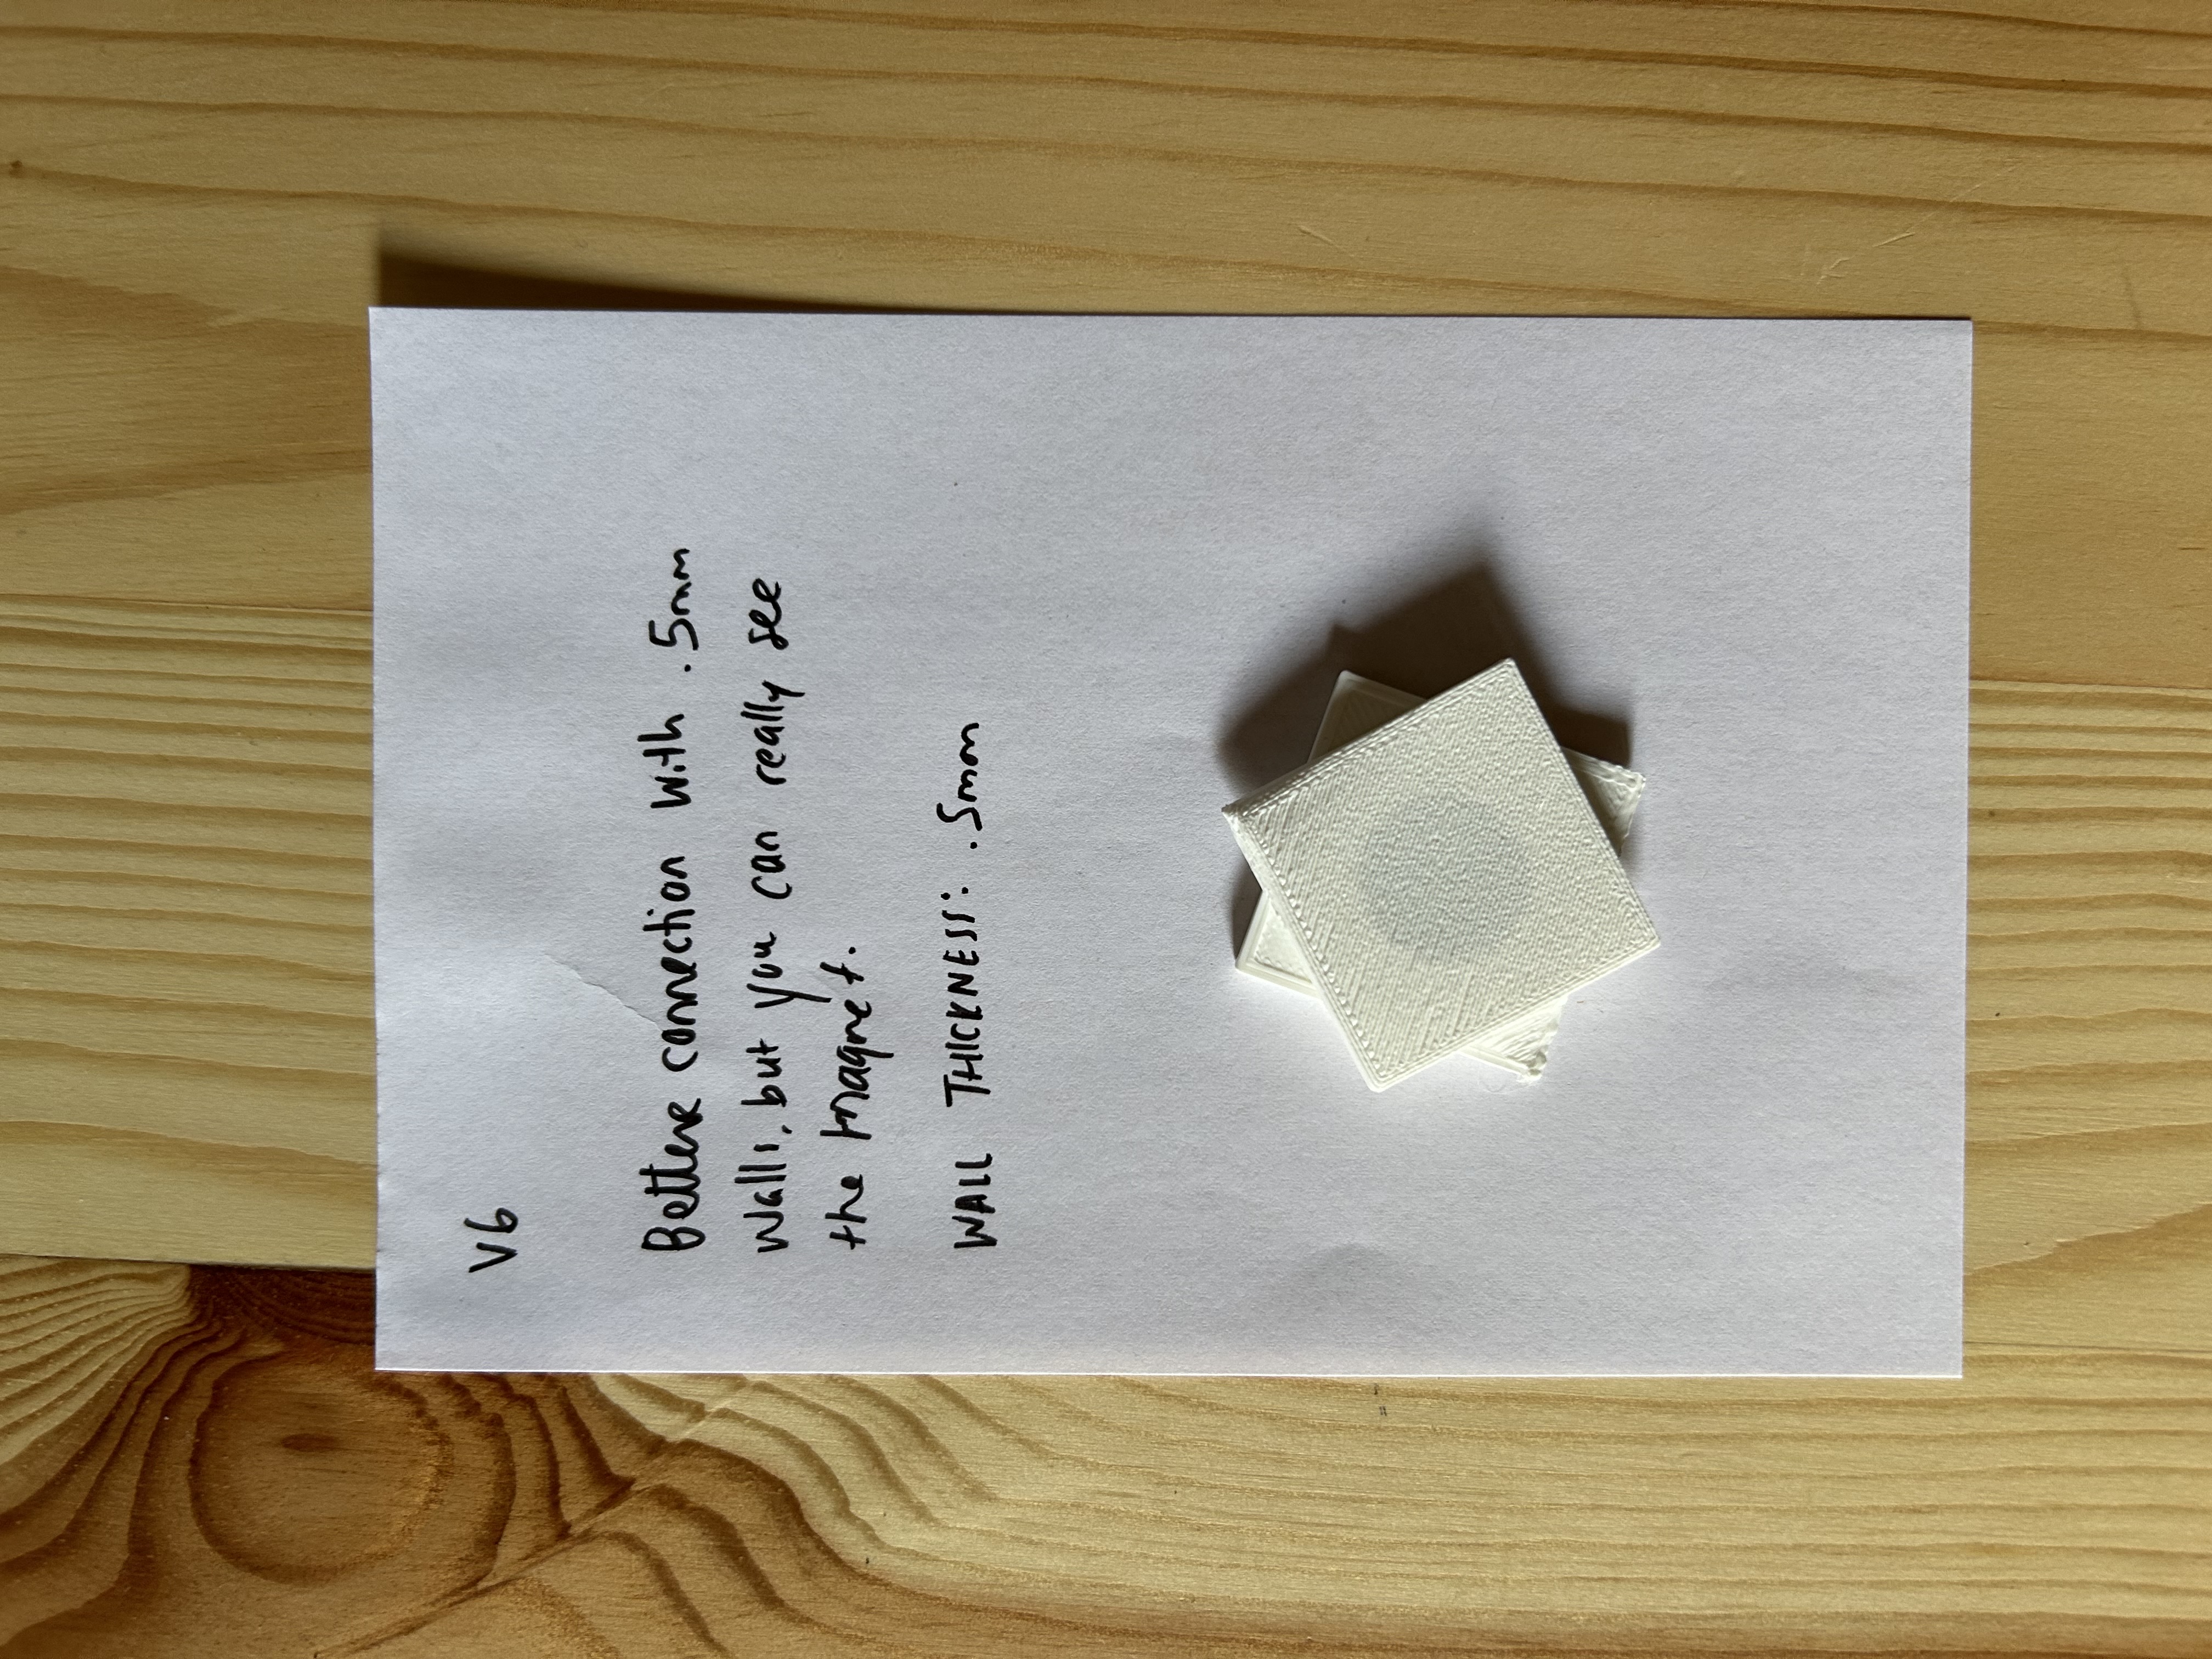 V6
Better connection with .5mm
walls, but you can really see
the magnet.
WALL THICKNESS: .5mm